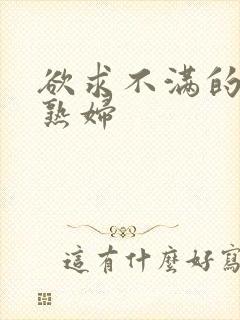 欲求不滿的
熟婦
這有什麼好寫